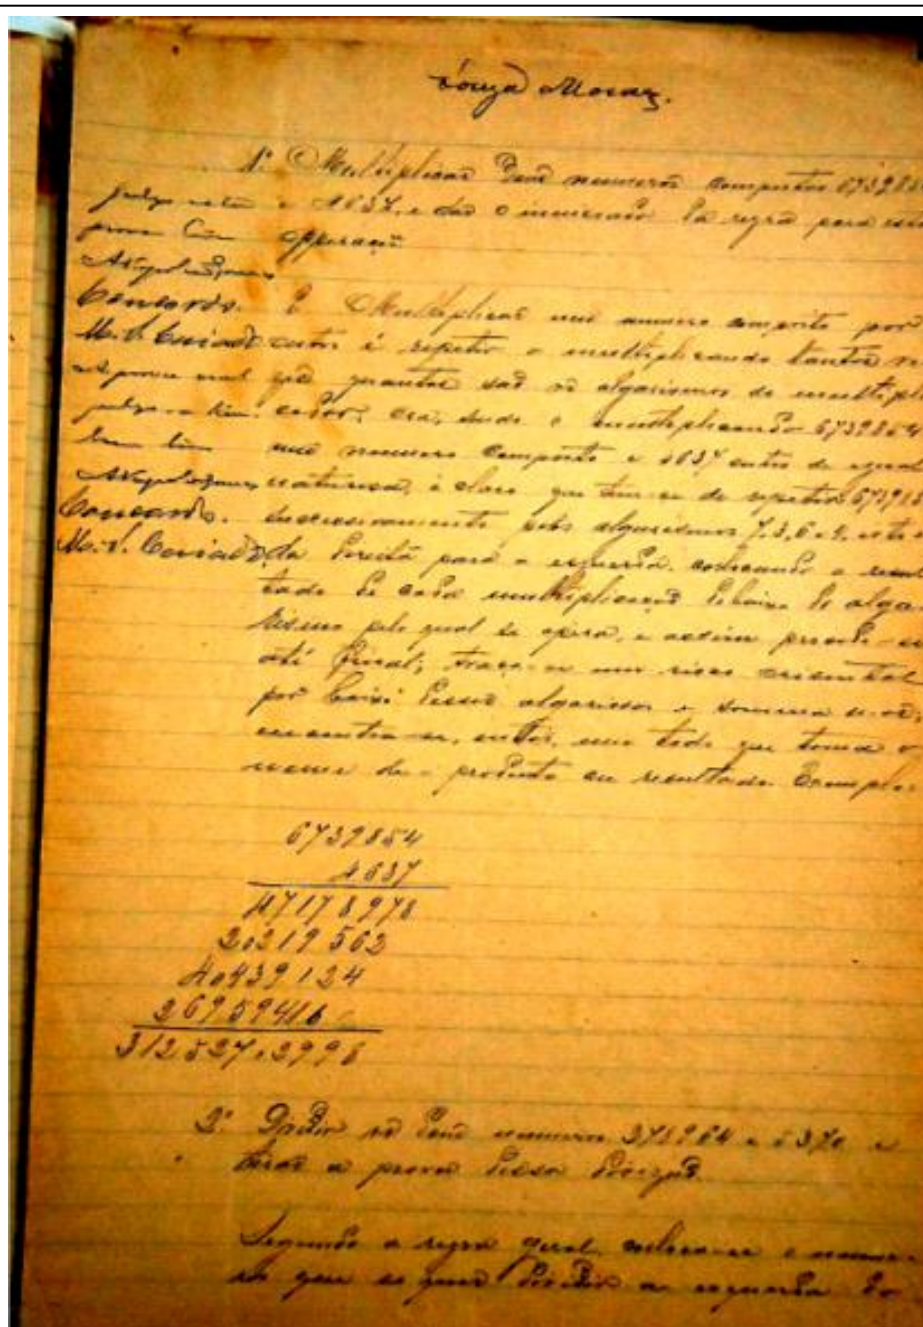 Souza Moraz.
1º Multiplicar dous numeros compostos 673985
e 4637, e dar o enunciado da regra para essa
operação
julgo esta
prova bôa
Concordo.
M. S. Coriado
A prova oral
julgo-a bôa
Concordo.
M. S. Coriado
É Multiplicar um numero composto por
outro é repetir o multiplicando tantas ve
quantos são os algarismos do multipli
cador; ora, sendo o multiplicando 6739854
um numero composto e 4637 outro de egual
natureza, é claro que tem-se de repetir 67398
successivamente pelos algarismos 7, 3, 6 e 4, isto é
da direita para a esquerda, collocando o resul
tado de cada multiplicação debaixo do alga
rismo pelo qual se opera, e assim procede-se
até final; traça-se um risco orisontal
por baixo desses algarismos e somma-se os
encontra-se, então, um todo que toma o
nome de - producto ou resultado. Exemplo:
6739854
4637
47178978
20219562
40439124
26959416
312527.2998
2º Dividir os dous numeros 373964 e 5370 e
tirar a prova dessa divizão
Segundo a regra geral, colloca-se o nume-
ro que se quer dividir a esquerda do